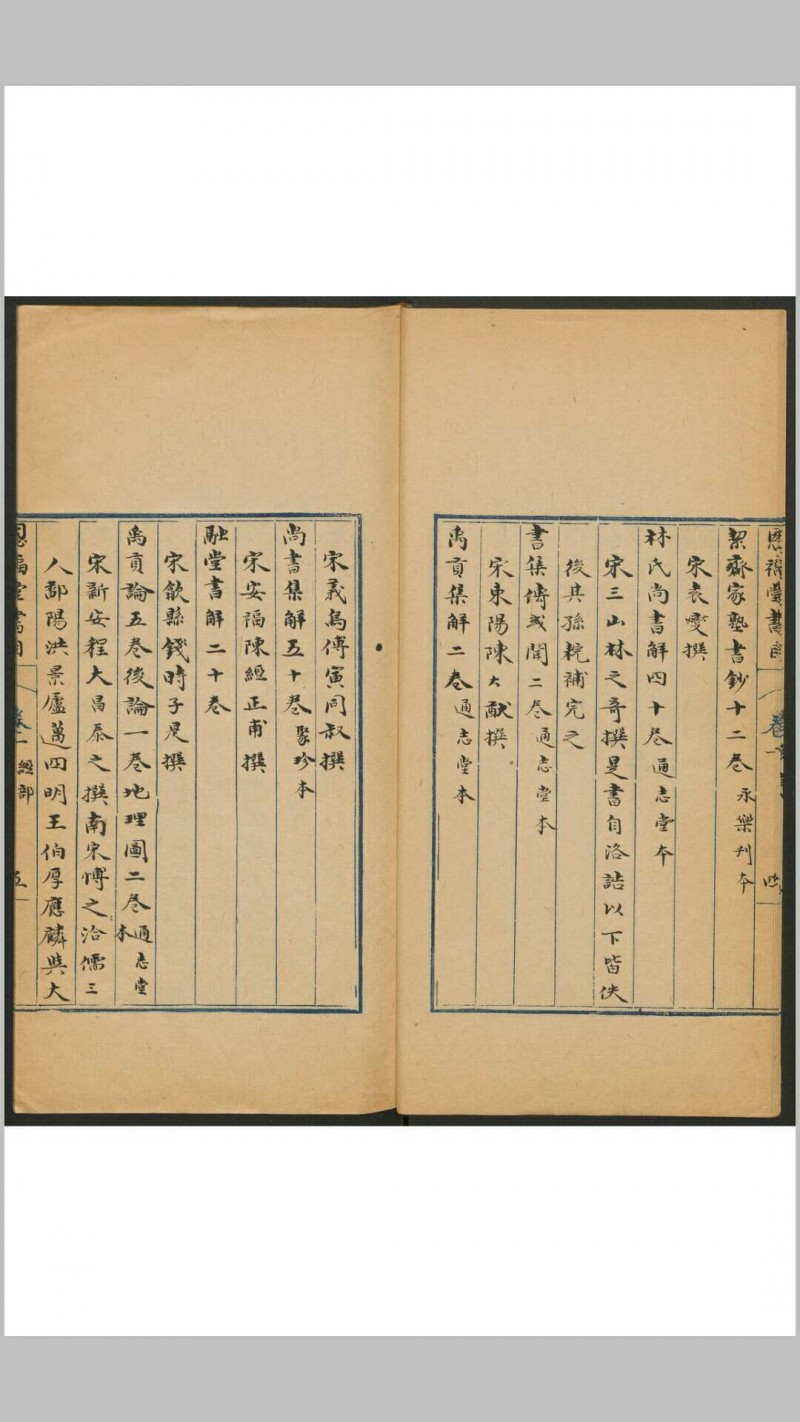 恩福堂書目 卷一
絜齋家塾書鈔十二卷永樂刋本
宋袁燮撰
林氏尚書解四十卷通志堂本
宋三山林之竒撰是書自洛誥以下皆佚
後其孫耕補完之
書集傳或聞二卷通志堂本
宋東陽陳大猷撰
禹貢集解二卷通志堂本
宋義烏傅寅同叔撰
尚書集解五十卷聚珍本
宋安福陳經正甫撰
融堂書解二十卷
宋歙縣錢時子是撰
禹貢論五卷後論一卷地理圖二卷通志堂本
宋新安程大昌泰之撰南宋愽之洽儒三
人鄱陽洪景廬邁四明王伯厚應麟與大
恩福堂書目 卷一 經部 五